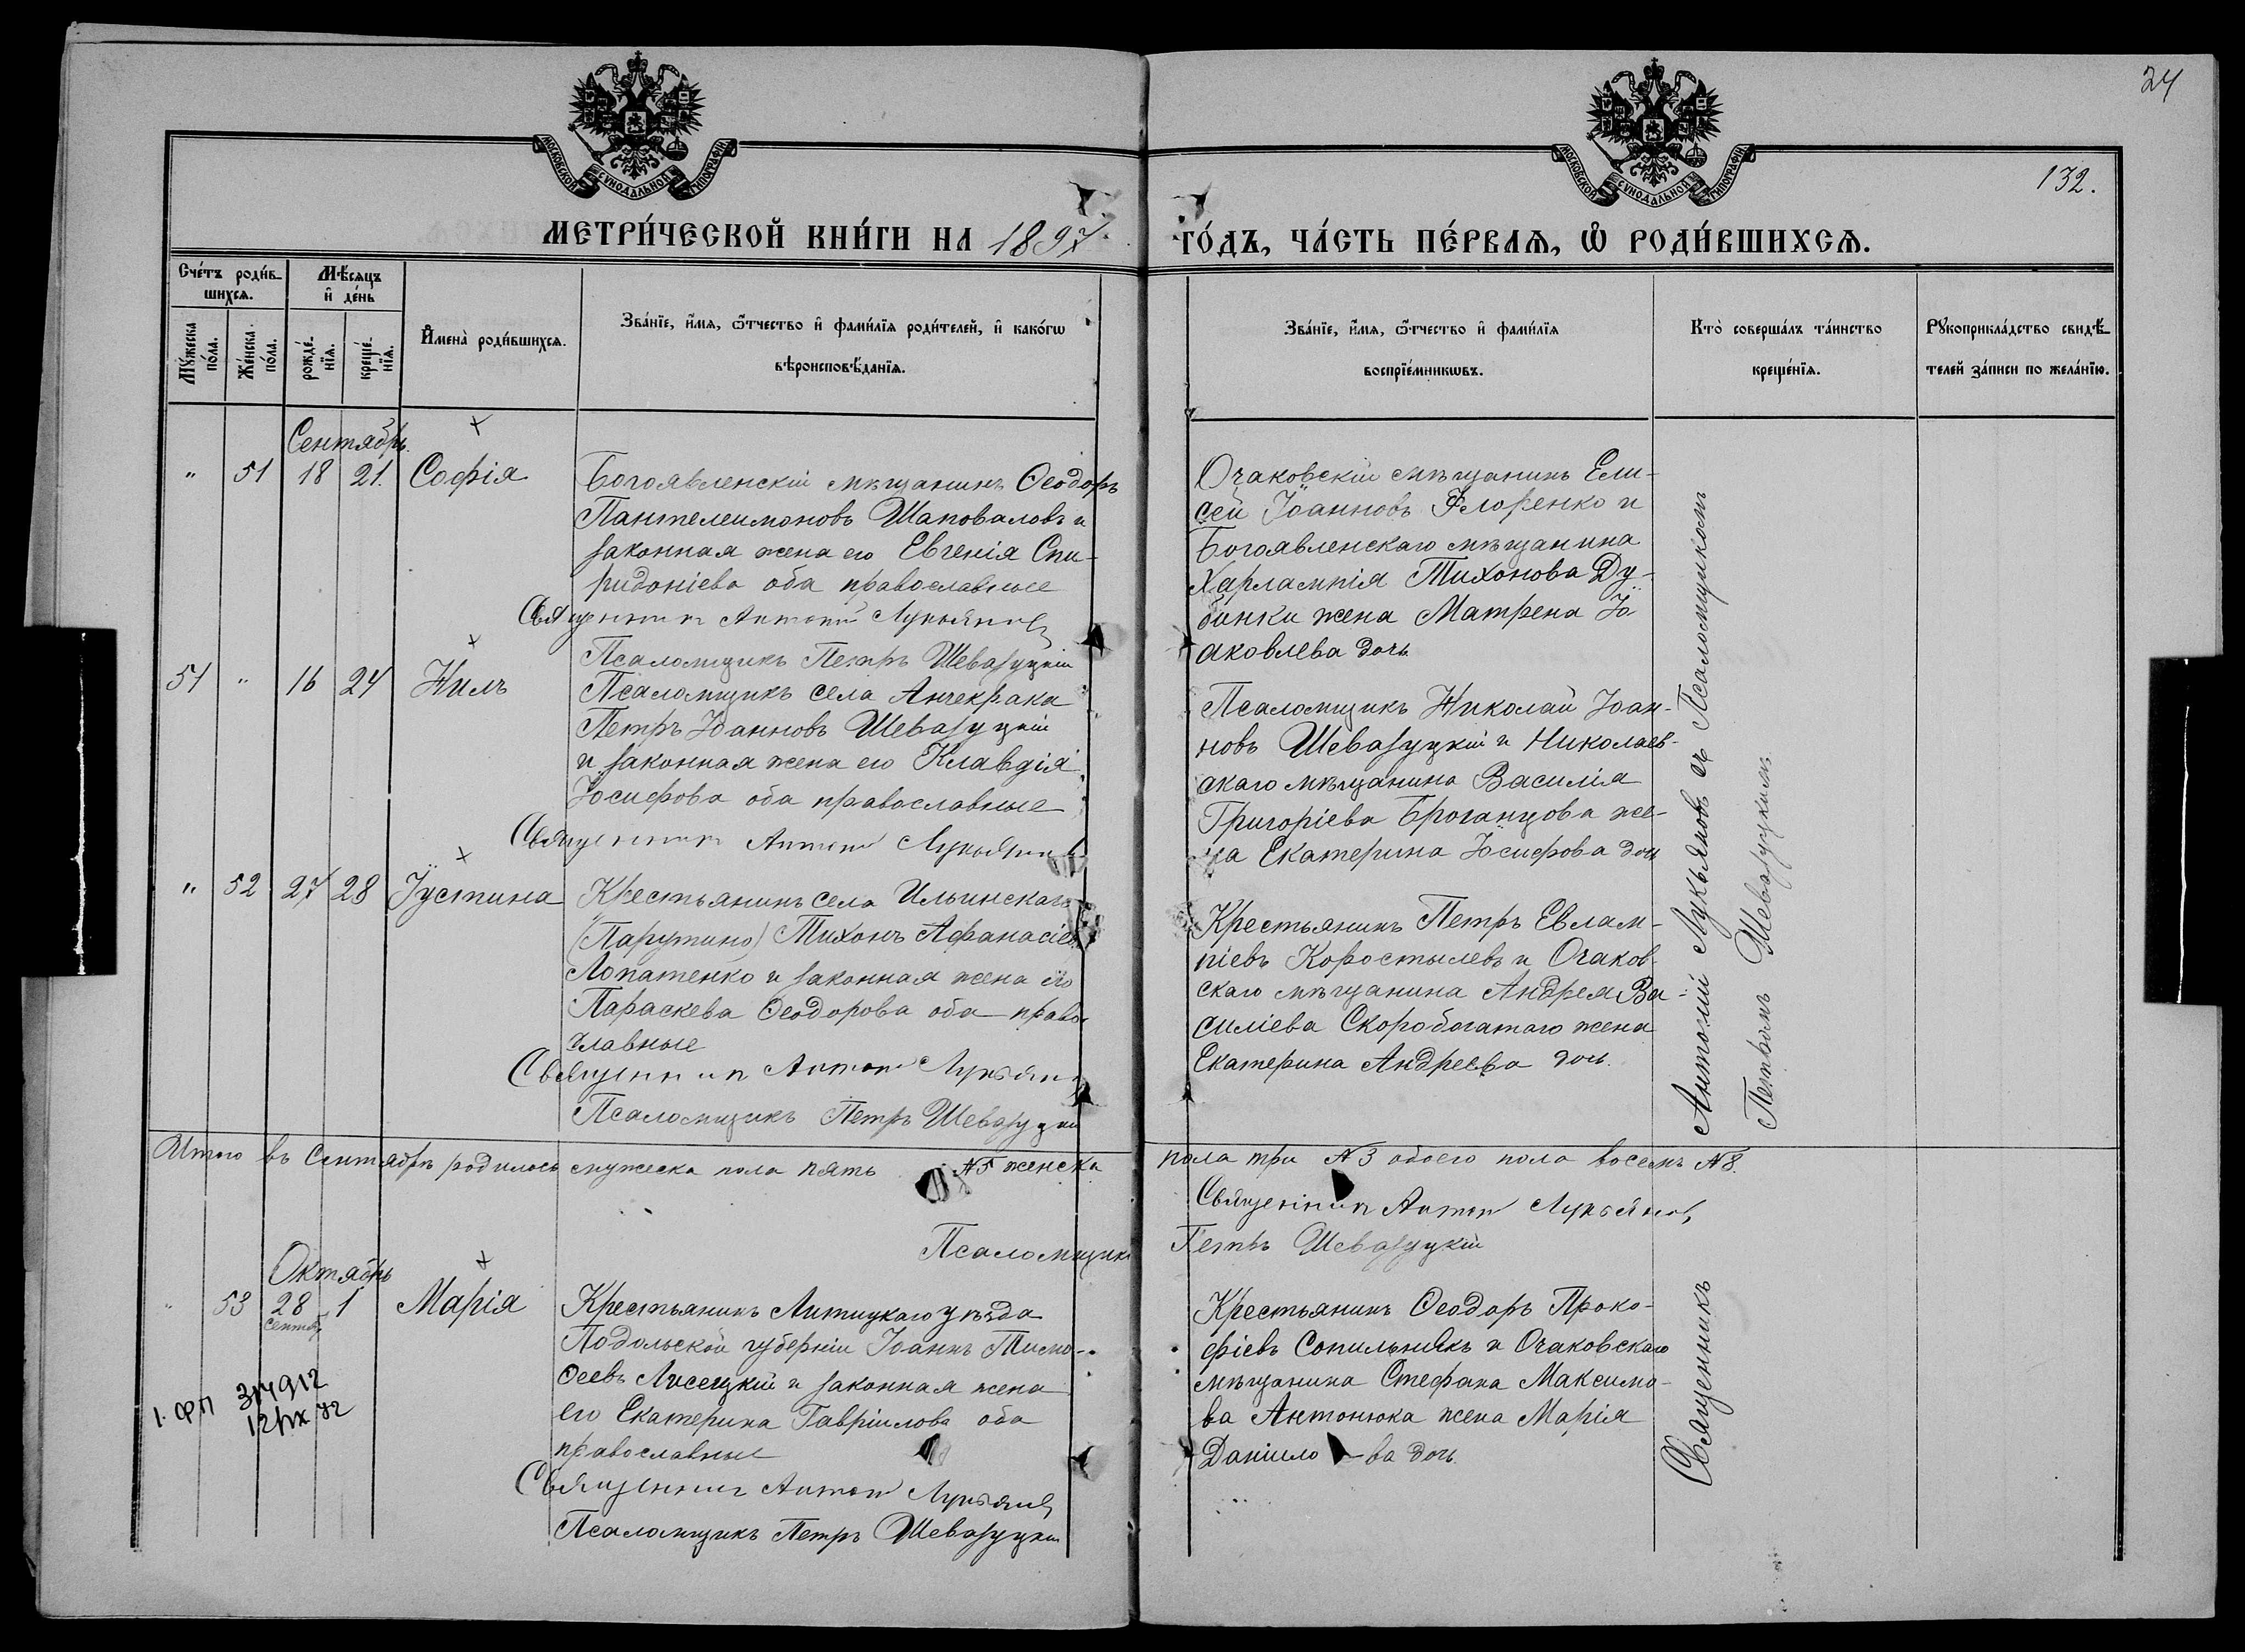 24
132.
МОСКОВСКОЙ СУНОДАЛЬНОЙ ТИПОГРАФІИ
МОСКОВСКОЙ СУНОДАЛЬНОЙ ТИПОГРАФІИ
МЕТРИ́ЧЕСКОЙ КНИ́ГИ НА 1897 ГО́ДЪ, ЧА́СТЬ ПЕ́РВАѦ, Ѡ҆ РОДИ́ВШИХСѦ.
Сче́тъ роди́в-
шихсѧ.
Мꙋ́жеска по́ла.
Же́нска по́ла.
Мѣ́сѧцъ
и҆ де́нь
рожде́-
нїѧ.
креще́-
нїѧ.
И҆мена̀ роди́вшихсѧ.
Зва́нїе, и҆́мѧ, ѻ҆́тчество и҆ фами́лїѧ роди́телей, и҆ како́гѡ
вѣроисповѣ́данїѧ.
Зва́нїе, и҆́мѧ, ѻ҆́тчество и҆ фами́лїѧ
воспрїе́мникѡвъ.
Кто̀ соверша́лъ та́инство
креще́нїѧ.
Рꙋкоприкла́дство свидѣ́-
телей за́писи по жела́нїю.
Сентябрь.
" 51 18 21. Софія
Богоявленскій мѣщанинъ Ѳеодоръ
Пантелеимоновъ Шаповаловъ и
законная жена его Евгенія Спи-
ридоніева оба православные
Священникъ Антоній Лукьяновъ
Псаломщикъ Петръ Шевазуцкій
Очаковскій мѣщанинъ Ели-
сей Іоанновъ Флоренко и
Богоявленскаго мѣщанина
Харлампія Тихонова Ду-
бинки жена Матрена Іо-
аковлева дочь
51 " 16 24 Нилъ
Псаломщикъ села Анчекрака
Петръ Іоанновъ Шевазуцкій
и законная жена его Клавдія
Іосифова оба православные
Священникъ Антоній Лукьяновъ
Псаломщикъ Николай Іоан-
новъ Шевазуцкій и Николаев-
скаго мѣщанина Василія
Григоріева Броганцова же-
на Екатерина Іосифова дочь
" 52 27 28 Іустина
Крестьянинъ села Ильинскаго
(Парутино) Тихонъ Афанасіевъ
Лопатенко и законная жена его
Параскева Ѳеодорова оба право-
славные
Священникъ Антоній Лукьяновъ
Псаломщикъ Петръ Шевазуцкій
Крестьянинъ Петръ Евлам-
піевъ Коростылевъ и Очаков-
скаго мѣщанина Андрея Ва-
силіева Скоробогатаго жена
Екатерина Андреева дочь.
Антоній Лукьяновъ съ Псаломщикомъ
Петромъ Шевазуцкимъ
Итого въ Сентябрѣ родилось мужеска пола пять №5 женска пола три №3 обоего пола восемь №8.
Священникъ Антоній Лукьяновъ
Псаломщикъ Петръ Шевазуцкій
Октябрь
" 53 28 1 Марія
Сентяб.
Крестьянинъ Литицкаго уѣзда
Подольской губерніи Іоаннъ Тимо-
ѳеевъ Лисецкій и законная жена
его Екатерина Гавріилова оба
православные
Священникъ Антоній Лукьяновъ
Псаломщикъ Петръ Шевазуцкій
Крестьянинъ Ѳеодоръ Проко-
фіевъ Сопильнякъ и Очаковскаго
мѣщанина Стефана Максимо-
ва Антонюка жена Марія
Даніило-ва дочь
Священникъ